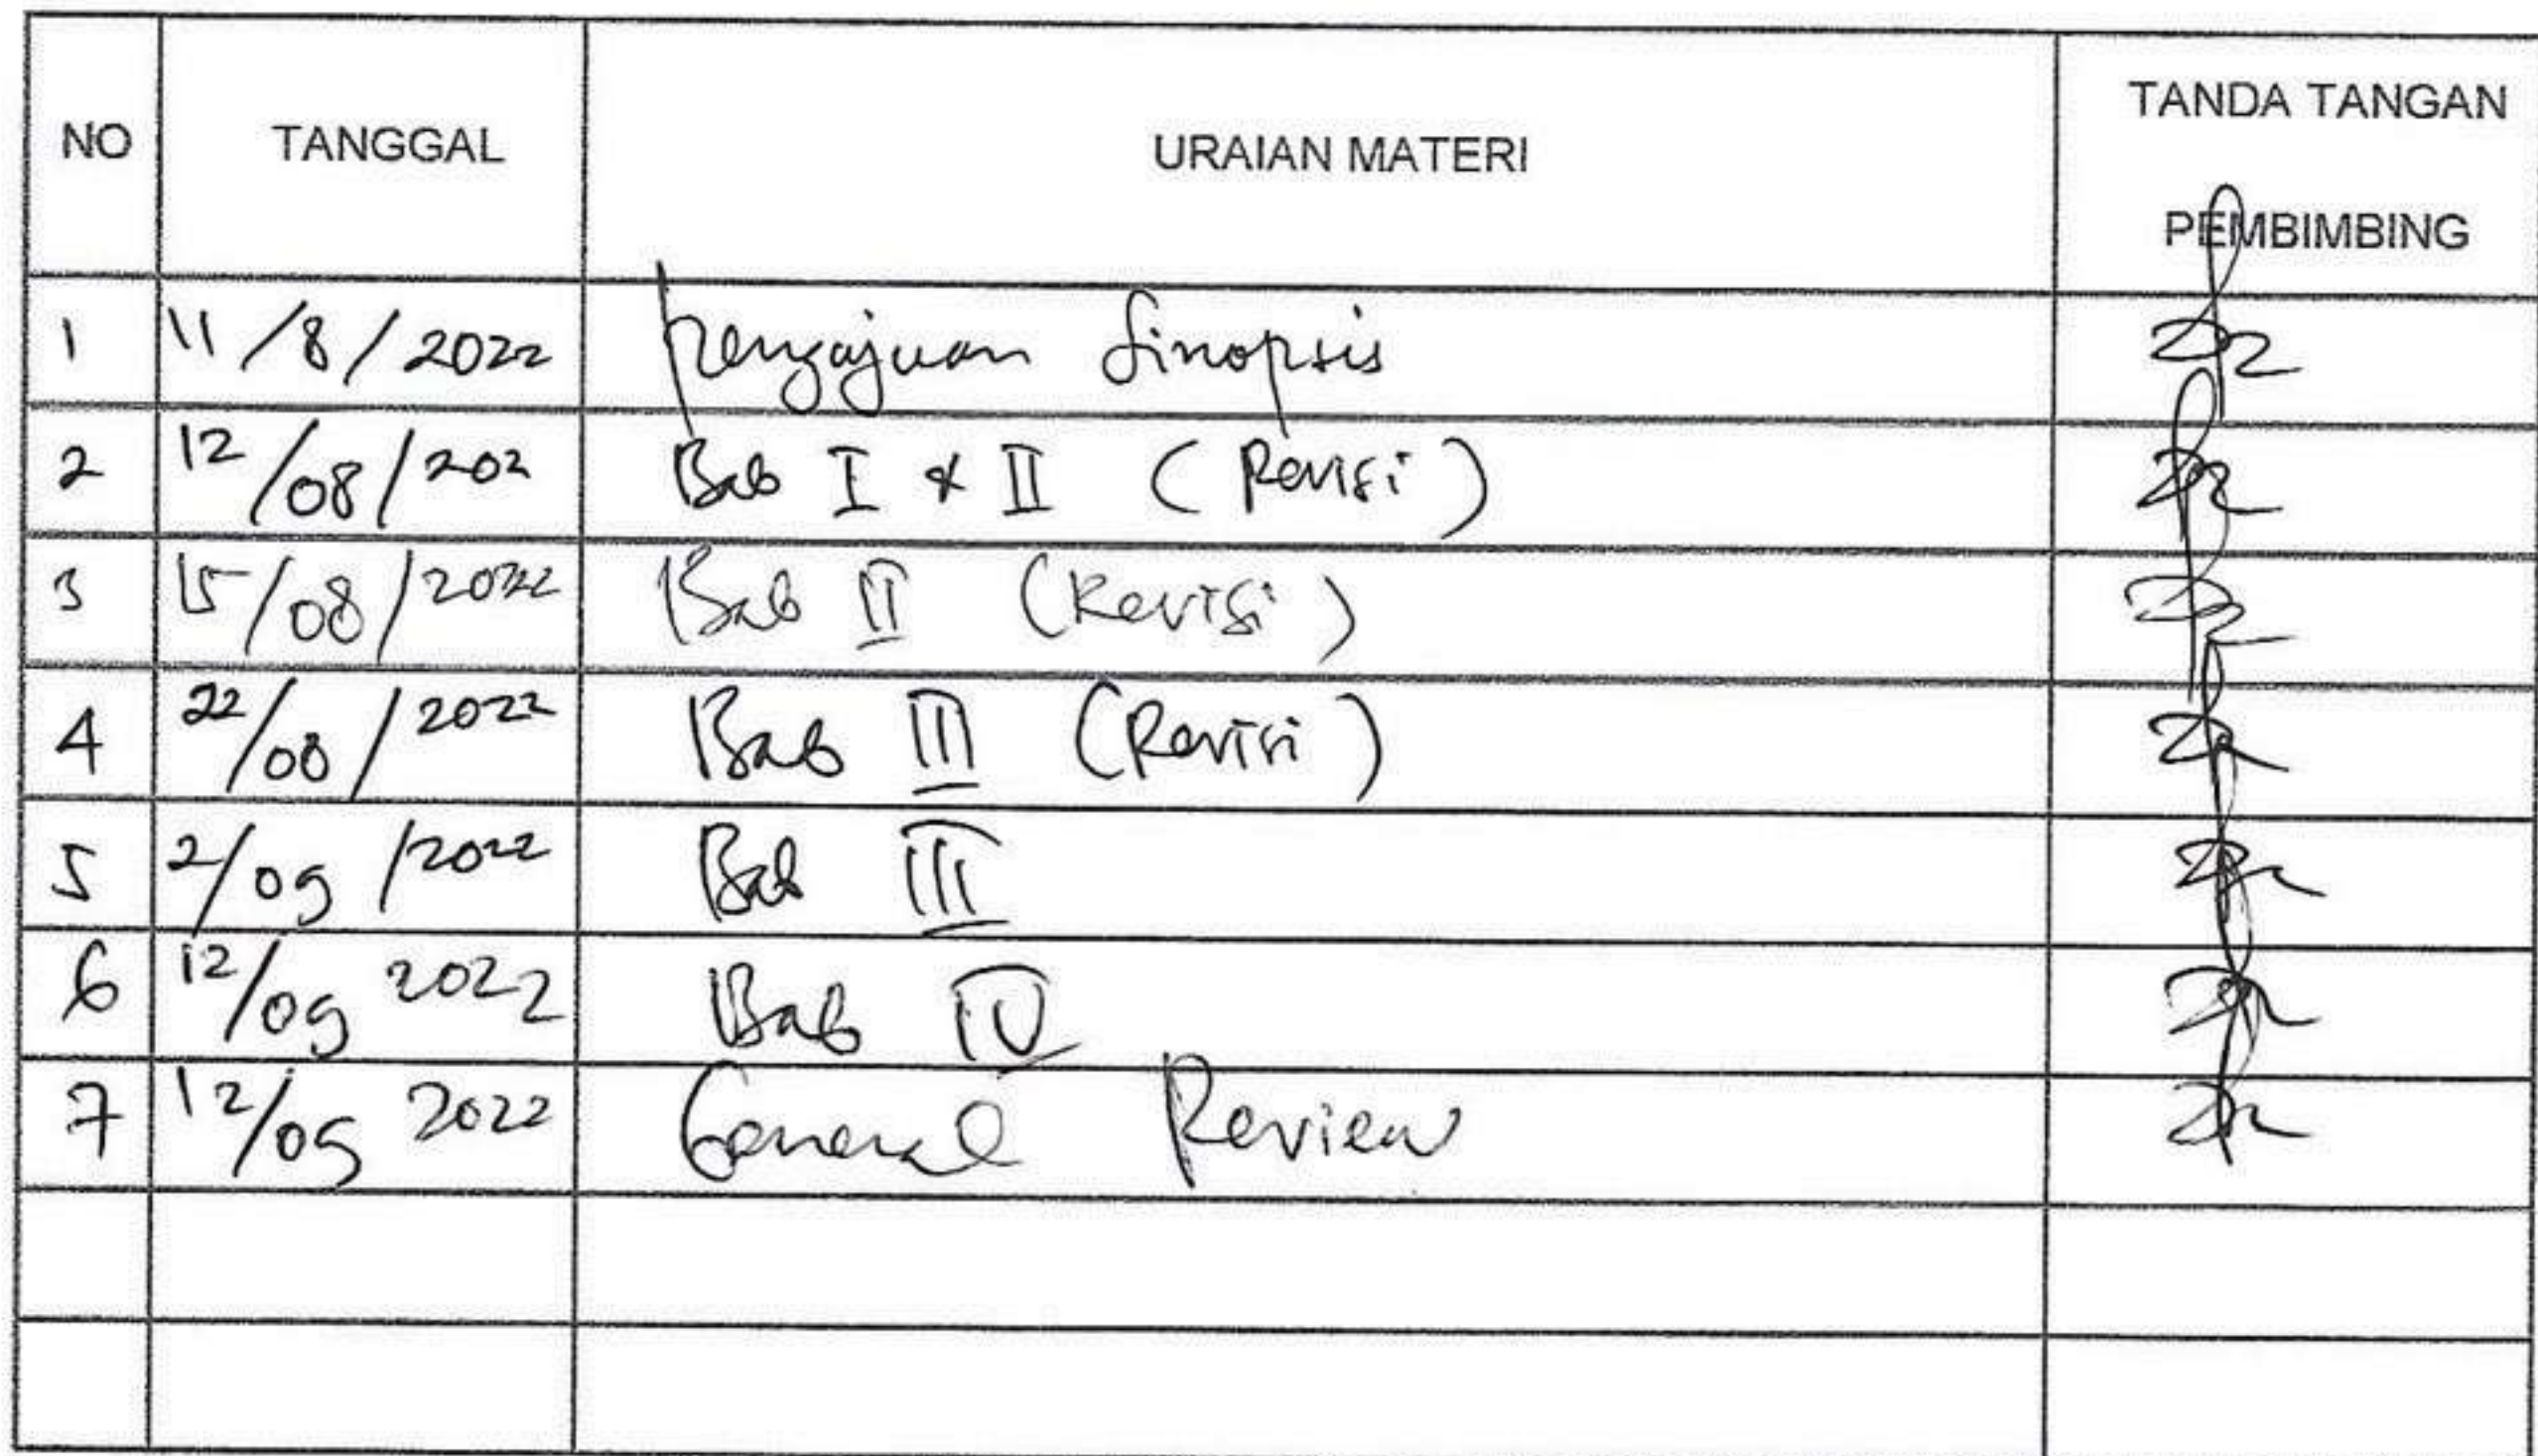 NO TANGGAL URAIAN MATERI TANDA TANGAN PEMBIMBING
1 11/8/2022 Pengajuan Sinopsis
2 12/08/202 Bab I & II (Revisi)
3 15/08/2022 Bab II (Revisi)
4 22/08/2022 Bab III (Revisi)
5 2/09/2022 Bab III
6 12/09 2022 Bab IV
7 12/09 2022 General Review